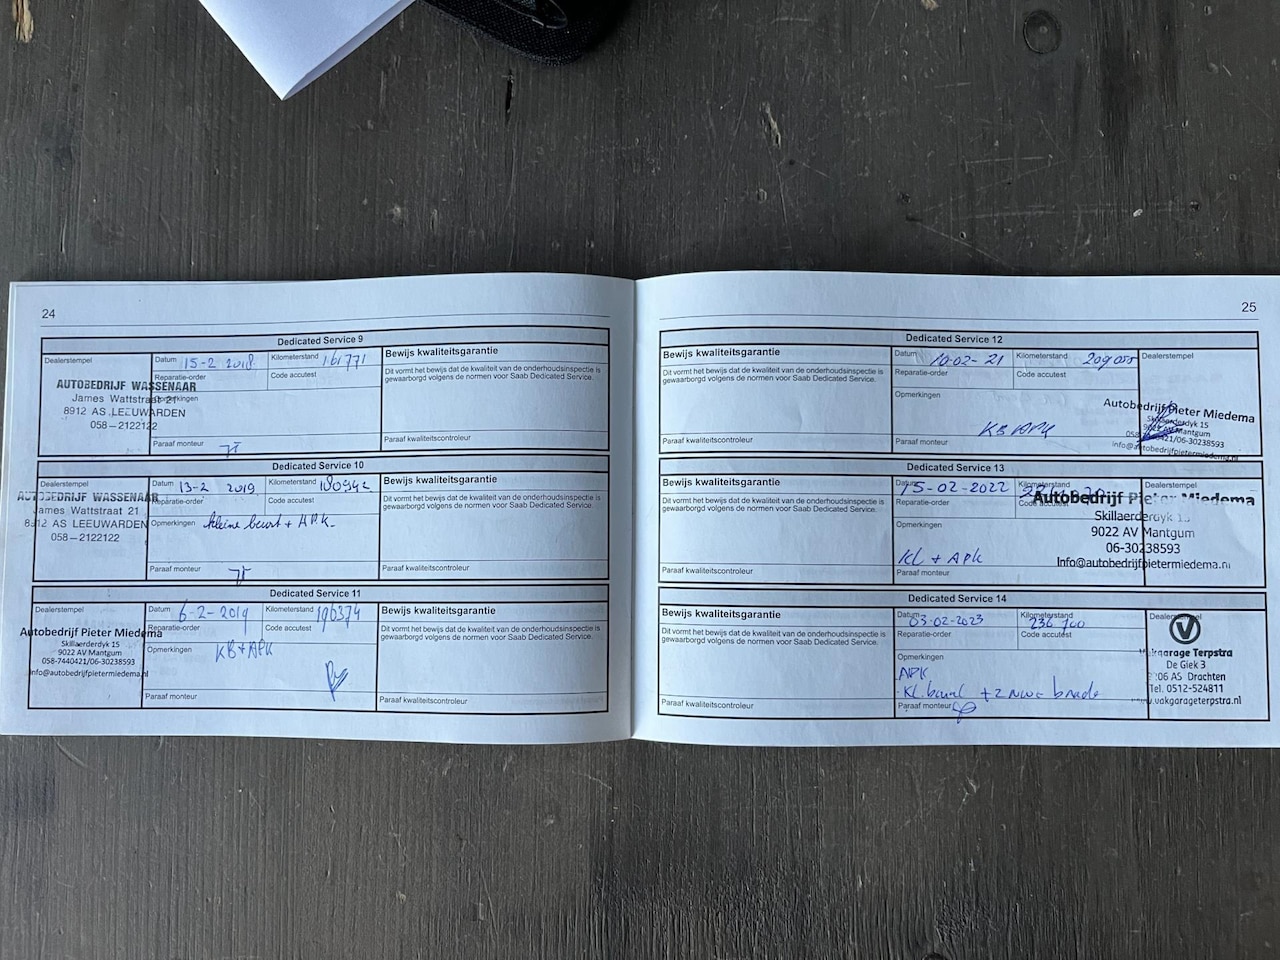 24
Dedicated Service 9
Dealerstempel
AUTOBEDRIJF WASSENAAR
James Wattstraat 21
8912 AS LEEUWARDEN
058-2122122
Datum 15-2 2018
Kilometerstand 161771
Reparatie-order
Code accutest
Opmerkingen
Paraaf monteur
Bewijs kwaliteitsgarantie
Dit vormt het bewijs dat de kwaliteit van de onderhoudsinspectie is
gewaarborgd volgens de normen voor Saab Dedicated Service.
Paraaf kwaliteitscontroleur
Dedicated Service 10
Dealerstempel
AUTOBEDRIJF WASSENAAR
James Wattstraat 21
8912 AS LEEUWARDEN
058-2122122
Datum 13-2 2019
Kilometerstand 180942
Reparatie-order
Code accutest
Opmerkingen kleine beurt + APK
Paraaf monteur
Bewijs kwaliteitsgarantie
Dit vormt het bewijs dat de kwaliteit van de onderhoudsinspectie is
gewaarborgd volgens de normen voor Saab Dedicated Service.
Paraaf kwaliteitscontroleur
Dedicated Service 11
Dealerstempel
Autobedrijf Pieter Miedema
Skillaerderdyk 15
9022 AV Mantgum
058-7440421/06-30238593
info@autobedrijfpietermiedema.nl
Datum 6-2-2019
Kilometerstand 196374
Reparatie-order
Code accutest
Opmerkingen KB+APK
Paraaf monteur
Bewijs kwaliteitsgarantie
Dit vormt het bewijs dat de kwaliteit van de onderhoudsinspectie is
gewaarborgd volgens de normen voor Saab Dedicated Service.
Paraaf kwaliteitscontroleur
25
Dedicated Service 12
Bewijs kwaliteitsgarantie
Dit vormt het bewijs dat de kwaliteit van de onderhoudsinspectie is
gewaarborgd volgens de normen voor Saab Dedicated Service.
Paraaf kwaliteitscontroleur
Datum 10-02-21
Kilometerstand 209055
Reparatie-order
Code accutest
Opmerkingen
KB APK
Paraaf monteur
Dealerstempel
Autobedrijf Pieter Miedema
Skillaerderdyk 15
9022 AV Mantgum
058-7440421/06-30238593
info@autobedrijfpietermiedema.nl
Dedicated Service 13
Bewijs kwaliteitsgarantie
Dit vormt het bewijs dat de kwaliteit van de onderhoudsinspectie is
gewaarborgd volgens de normen voor Saab Dedicated Service.
Paraaf kwaliteitscontroleur
Datum 15-02-2022
Kilometerstand
Reparatie-order
Code accutest
Opmerkingen
KL + APK
Paraaf monteur
Autobedrijf Pieter Miedema
Skillaerderdyk 15
9022 AV Mantgum
06-30238593
Info@autobedrijfpietermiedema.nl
Dedicated Service 14
Bewijs kwaliteitsgarantie
Dit vormt het bewijs dat de kwaliteit van de onderhoudsinspectie is
gewaarborgd volgens de normen voor Saab Dedicated Service.
Paraaf kwaliteitscontroleur
Datum 03-02-2023
Kilometerstand 236 100
Reparatie-order
Code accutest
Opmerkingen
APK
KL beurt + 2 nwe
Paraaf monteur
Dealerstempel
Vakgarage Terpstra
De Giek 3
9206 AS Drachten
Tel. 0512-524811
www.vakgarageterpstra.nl